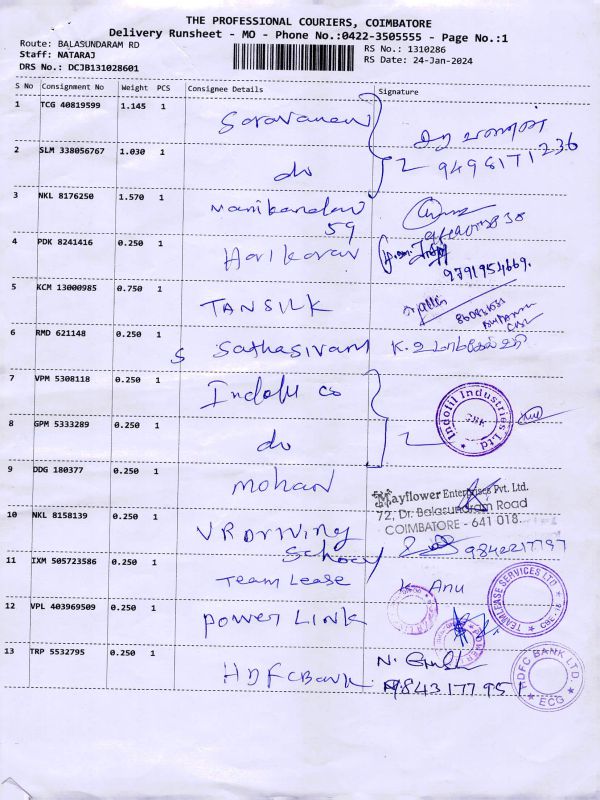 THE PROFESSIONAL COURIERS, COIMBATORE
Delivery Runsheet - MO - Phone No.:0422-3505555 - Page No.:1
Route: BALASUNDARAM RD
RS No.: 1310286
Staff: NATARAJ
RS Date: 24-Jan-2024
DRS No.: DCJB131028601
S No Consignment No Weight PCS Consignee Details Signature
1 TCG 40819599 1.145 1 Saravanan
2 SLM 338056767 1.030 1 do 2 9498171236
3 NKL 8176250 1.570 1 Manikandan
59
4 PDK 8241416 0.250 1 Harikaran
9791954669.
5 KCM 13000985 0.750 1 TANSILK
6 RMD 621148 0.250 1 S Sathasivam K.
7 VPM 5308118 0.250 1 Indofil co
Indofil Industries Ltd
CBK
8 GPM 5333289 0.250 1 do 2
9 DDG 180377 0.250 1 Mohan
Mayflower Enterprises Pvt. Ltd.
72, Dr. Balasundram Road
COIMBATORE - 641 018.
10 NKL 8158139 0.250 1 VR Driving
School 9842217797
11 IXM 505723586 0.250 1 Team Lease K. Anu
TEAMLEASE SERVICES LTD
12 VPL 403969509 0.250 1 Power LINK
13 TRP 5532795 0.250 1 HDFC Bank N.
9843177951
HDFC BANK LTD.
ECG